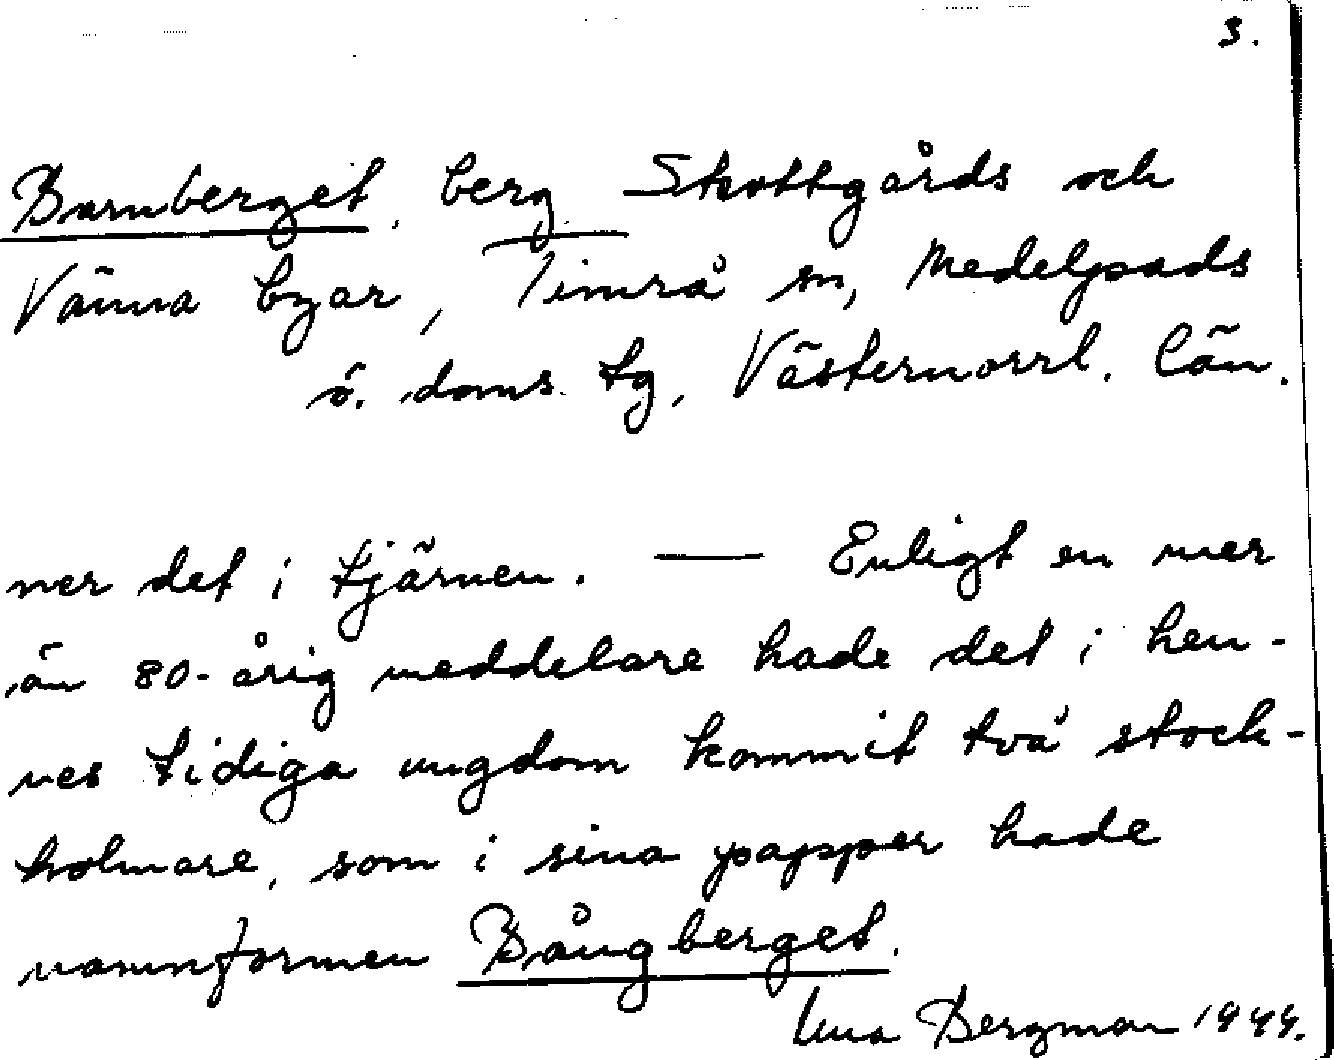 3.
Barnberget, berg Skottgårds och
Vänna byar, Timrå sn, Medelpads
ö. doms. tg, Västernorrl. län.
ner det i tjärnen. — Enligt en mer
än 80-årig meddelare hade det i hen-
nes tidiga ungdom kommit två stock-
holmare, som i sina papper hade
namnformen Bångberget.
Bergman 1944.